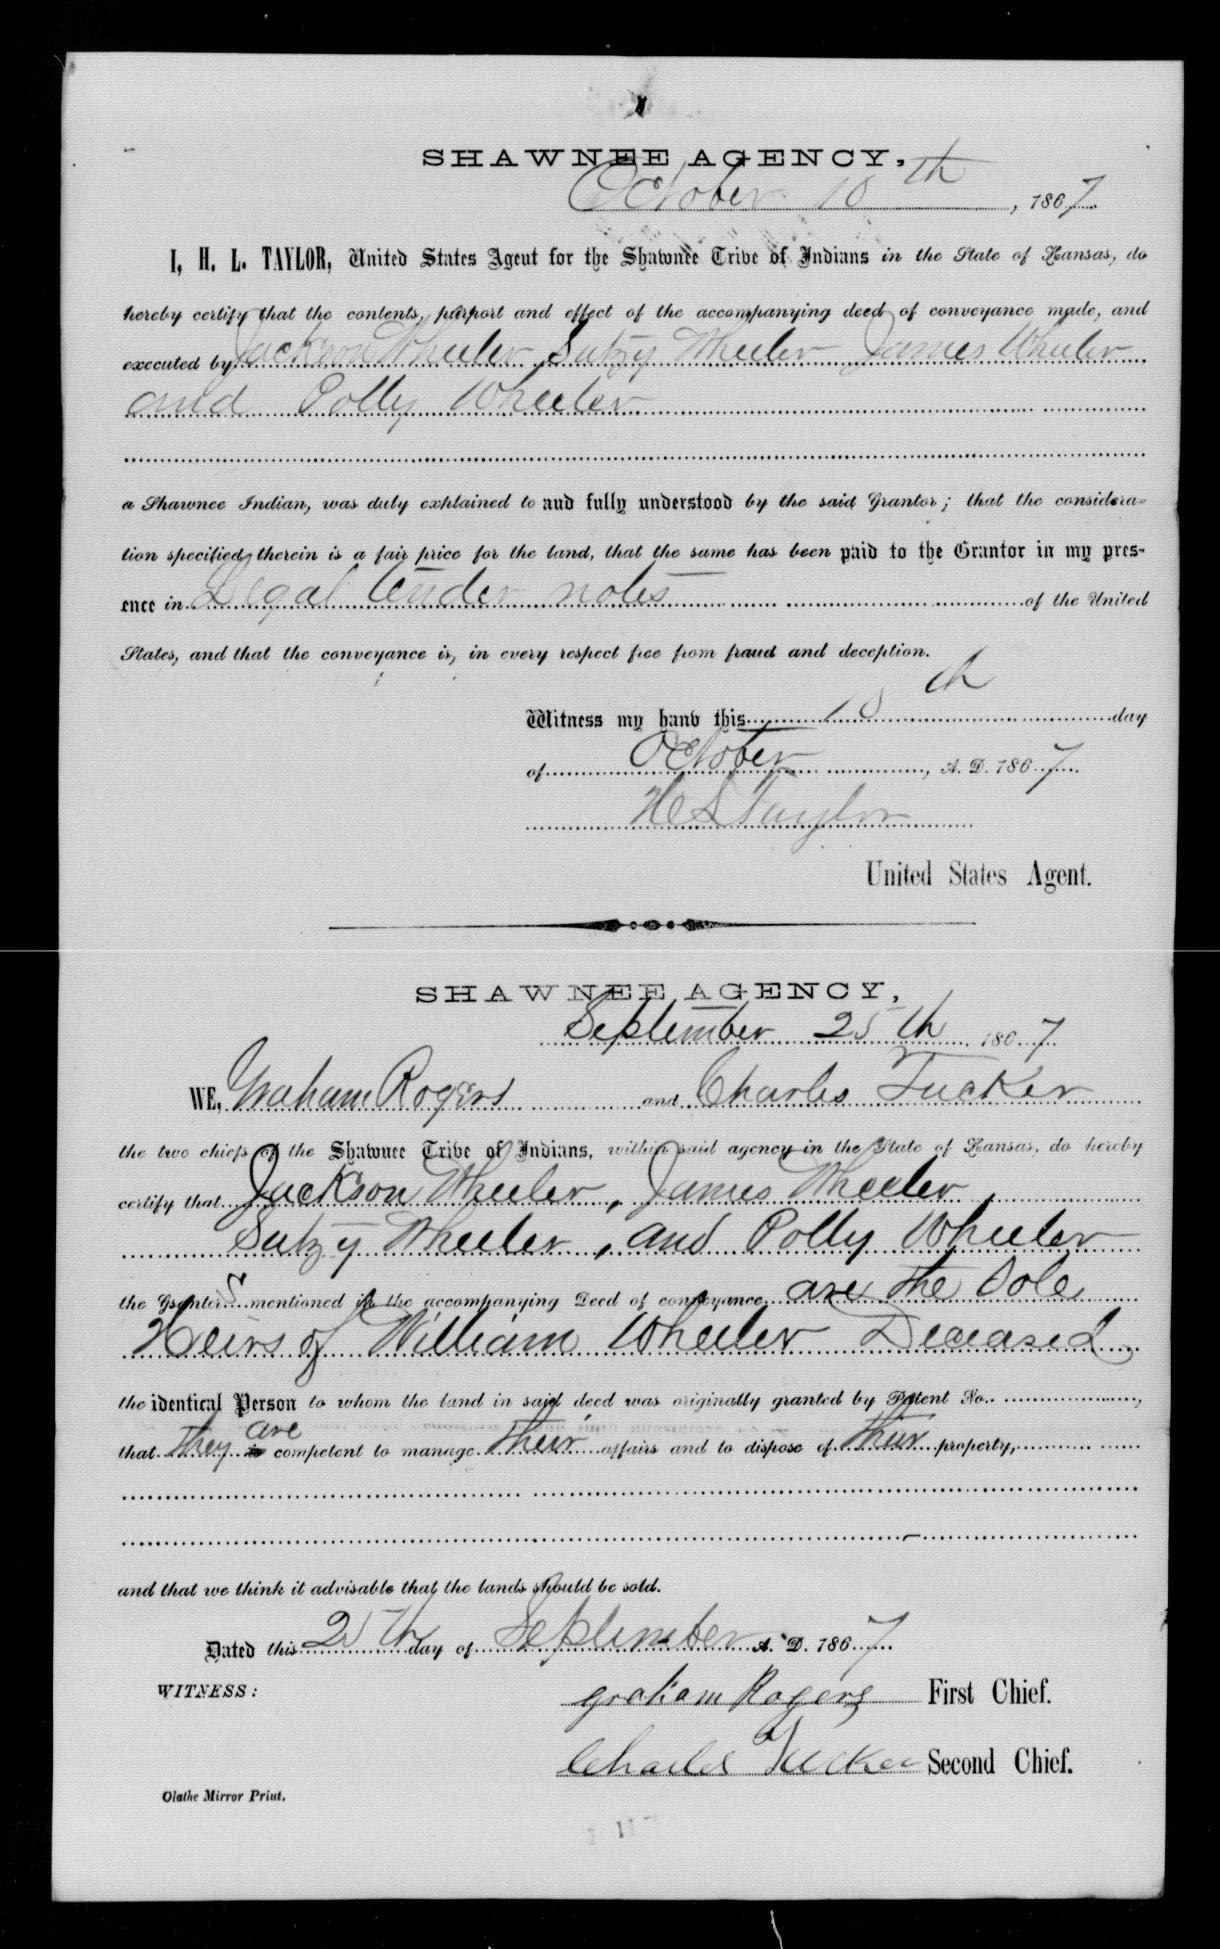 SHAWNEE AGENCY,
October 10th, 1867
I, H. L. TAYLOR, United States Agent for the Shawnee Tribe of Indians in the State of Kansas, do
hereby certify that the contents, purport and effect of the accompanying deed of conveyance made, and
executed by Jackson Wheeler, Sutzy Wheeler James Wheeler
and Polly Wheeler
a Shawnee Indian, was duly explained to and fully understood by the said Grantor; that the considera-
tion specified therein is a fair price for the land, that the same has been paid to the Grantor in my pres-
ence in Legal tender notes of the United
States, and that the conveyance is, in every respect free from fraud and deception.
Witness my hand this 10th day
of October, A. D. 1867
H L Taylor
United States Agent.
SHAWNEE AGENCY,
September 25th 1867
WE, Graham Rogers and Charles Tucker
the two chiefs of the Shawnee Tribe of Indians, within said agency in the State of Kansas, do hereby
certify that Jackson Wheeler, James Wheeler,
Sutzy Wheeler, and Polly Wheeler
the Grantors mentioned in the accompanying Deed of conveyance, are the Sole
Heirs of William Wheeler Deceased
the identical Person to whom the land in said deed was originally granted by Patent No.,
that they are competent to manage their affairs and to dispose of their property,
and that we think it advisable that the lands should be sold.
Dated this 25th day of September A. D. 1867
WITNESS:
graham Rogers First Chief.
Charles Tucker Second Chief.
Olathe Mirror Print.